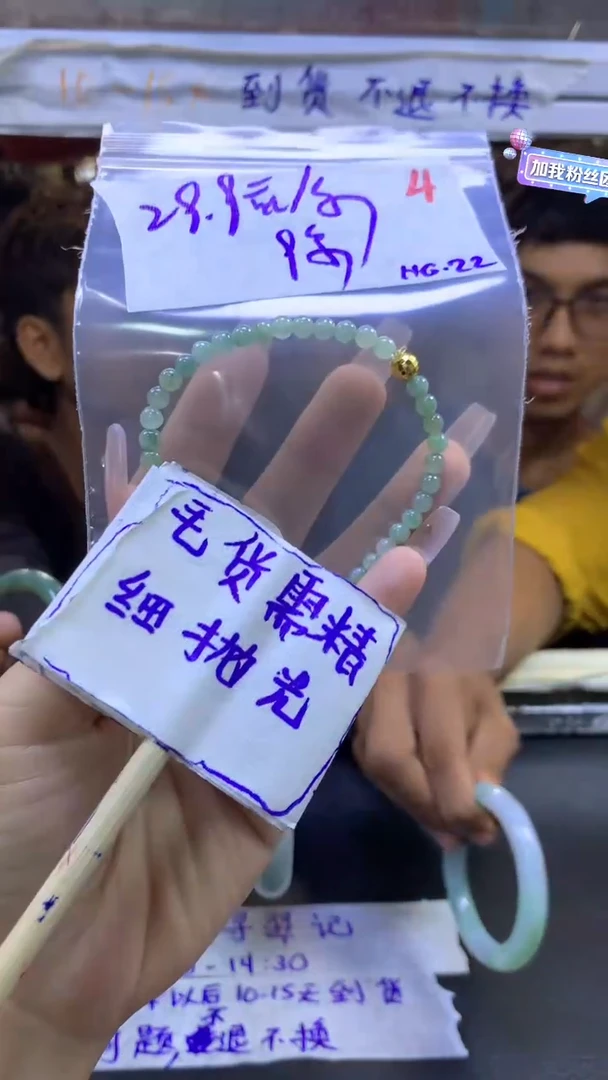 到货 不退 不换
加我粉丝团
29.9元/条
4
9条
HG-22
毛货需精
细抛光
翠记
-14:30
以后10-15天到货
题,不退不换